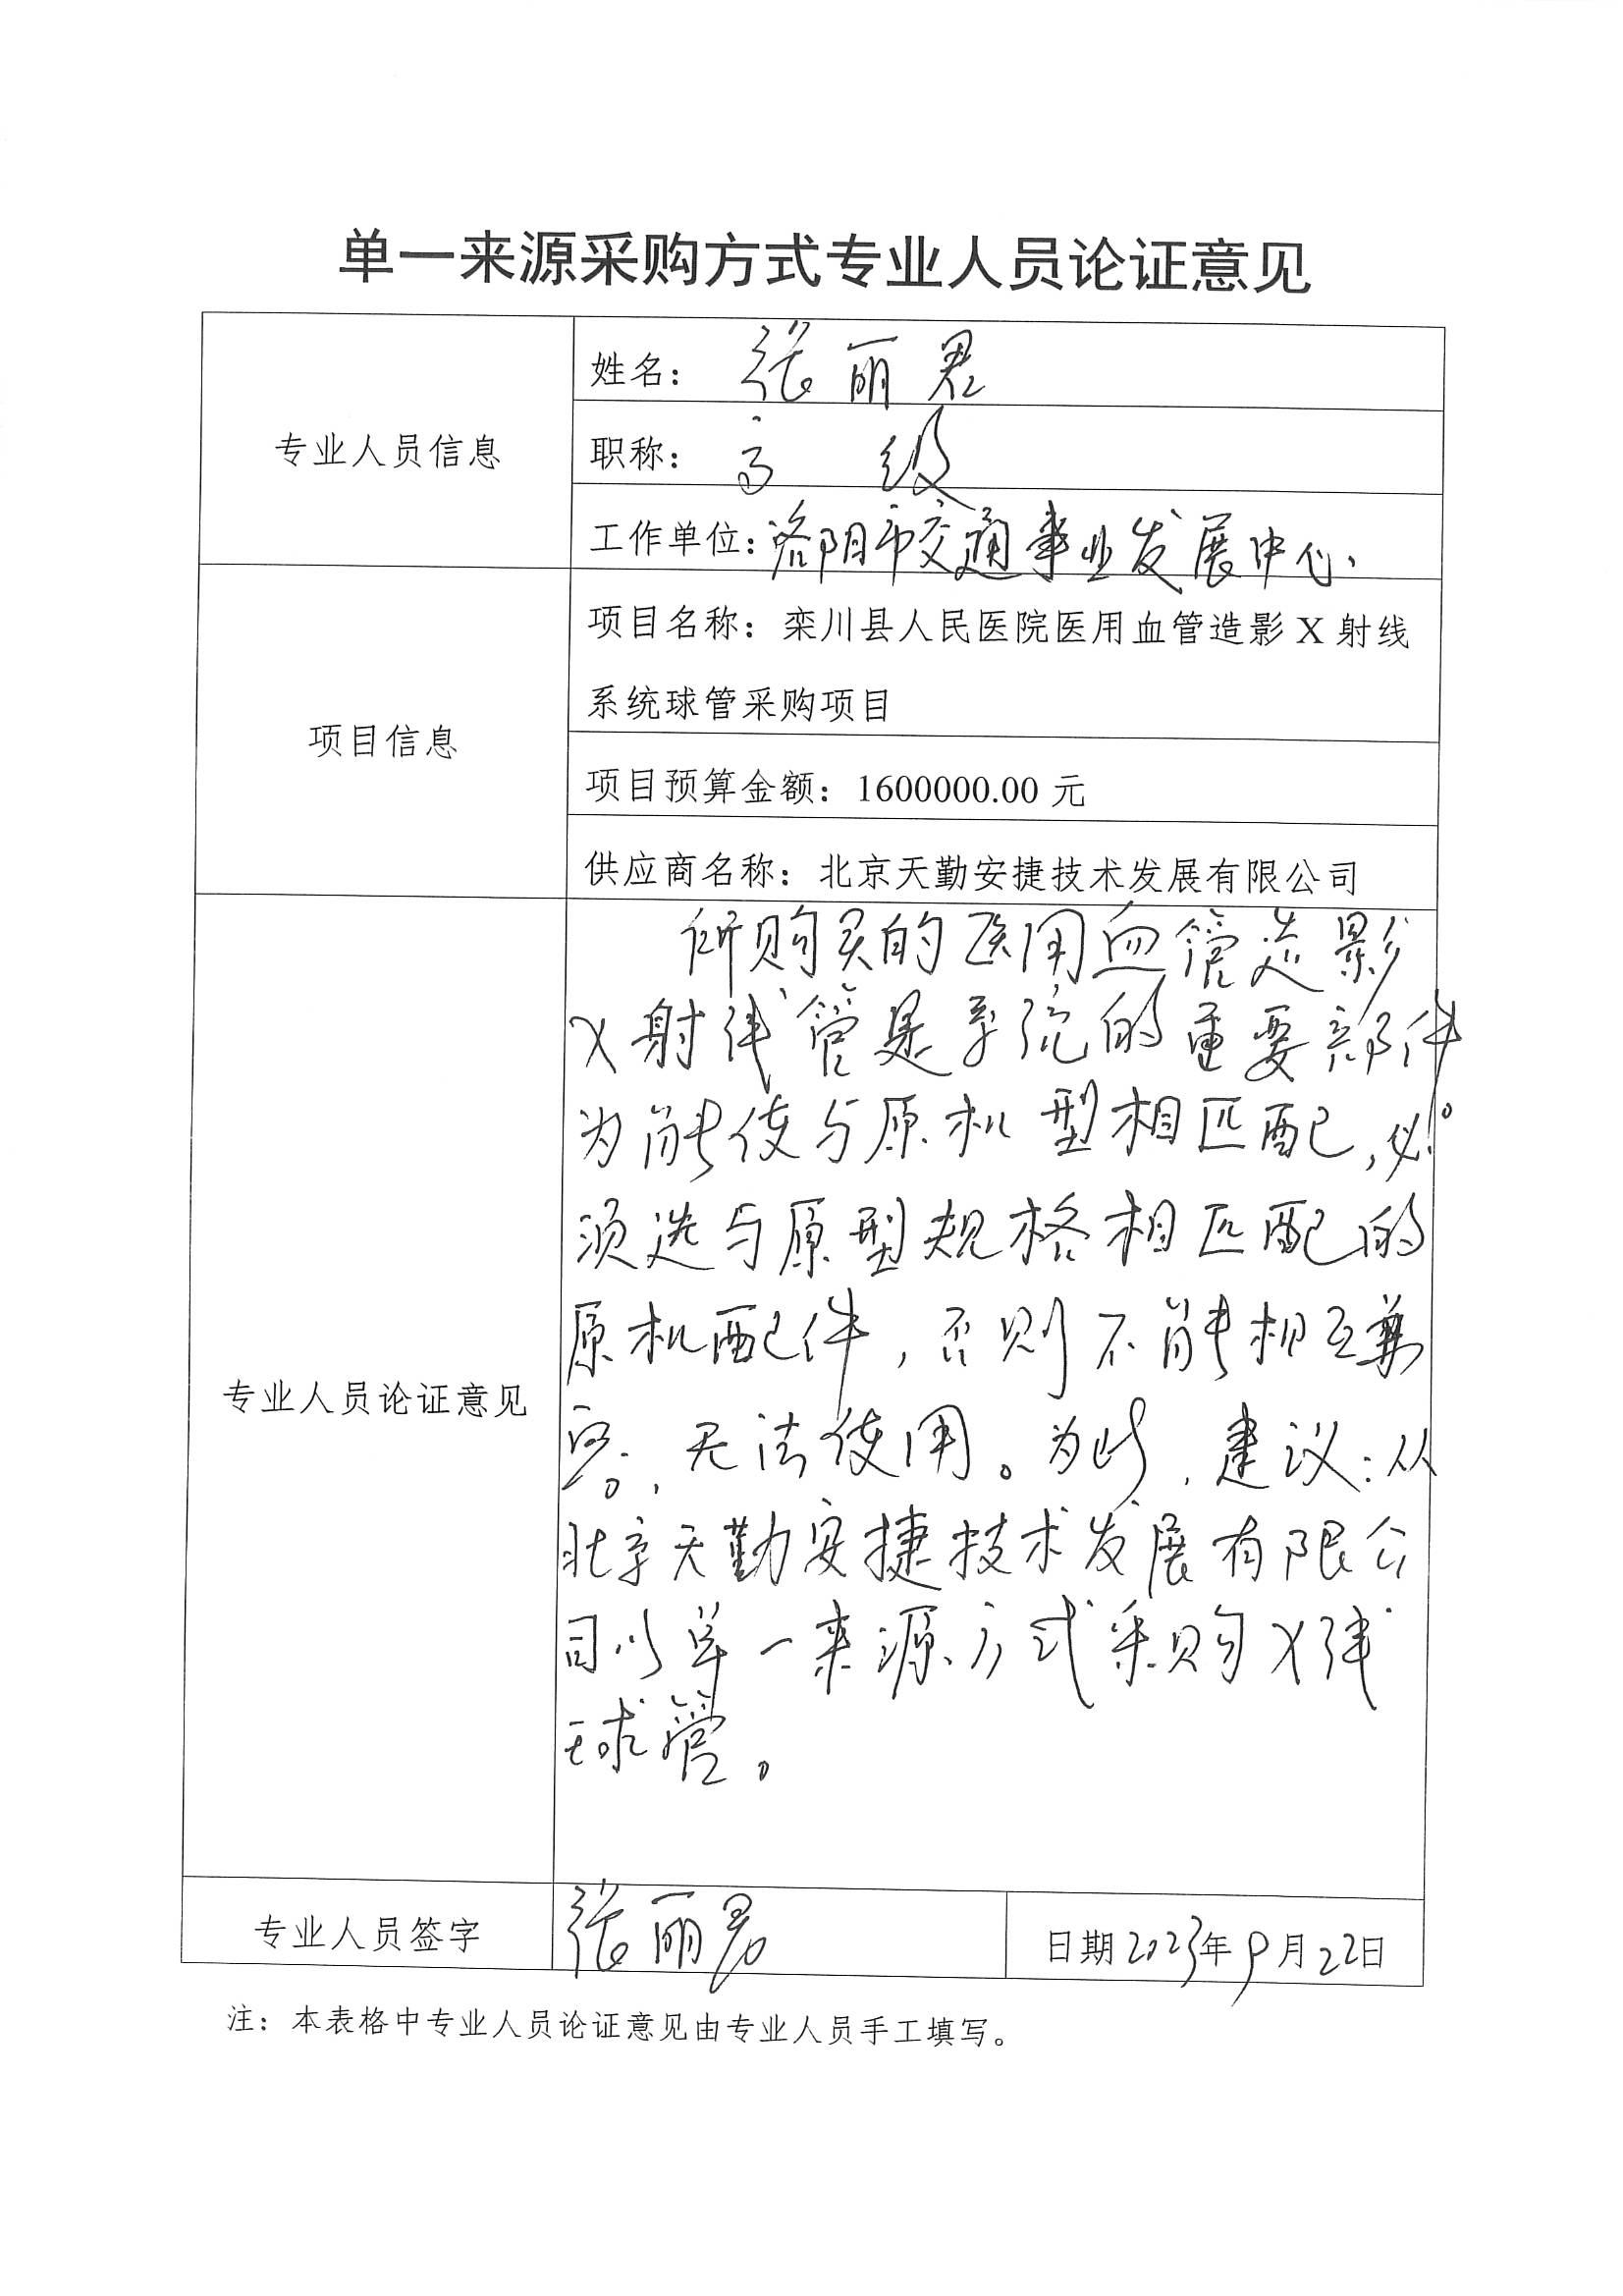 单一来源采购方式专业人员论证意见
专业人员信息
姓名：张丽君
职称：高级
工作单位：洛阳市交通事业发展中心.
项目信息
项目名称：栾川县人民医院医用血管造影X射线
系统球管采购项目
项目预算金额：1600000.00元
供应商名称：北京天勤安捷技术发展有限公司
专业人员论证意见
所购买的医用血管造影
X射线管是系统的重要部件。
为能使与原机型相匹配，必
须选与原型规格相匹配的
原机配件，否则不能相互兼
容，无法使用。为此，建议：从
北京天勤安捷技术发展有限公
司以单一来源方式采购X线
球管。
专业人员签字
张丽君
日期2023年9月22日
注：本表格中专业人员论证意见由专业人员手工填写。